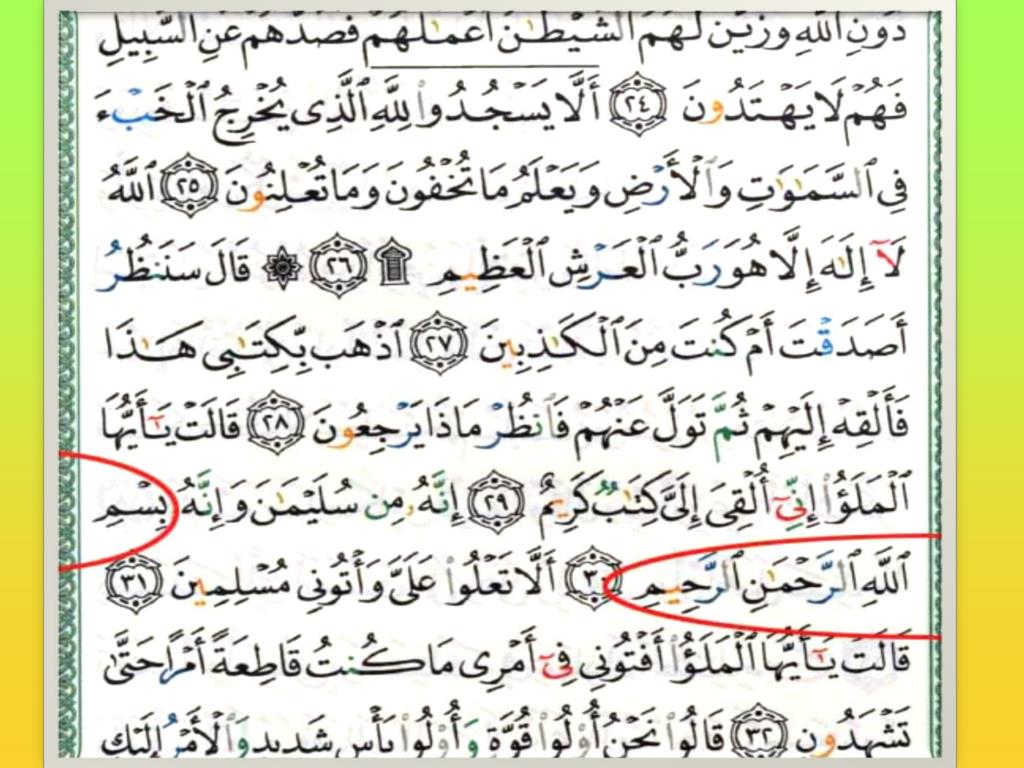 دُونِ ٱللَّهِ وَزَيَّنَ لَهُمُ ٱلشَّيْطَـٰنُ أَعْمَـٰلَهُمْ فَصَدَّهُمْ عَنِ ٱلسَّبِيلِ
فَهُمْ لَا يَهْتَدُونَ ٢٤ أَلَّا يَسْجُدُوا۟ لِلَّهِ ٱلَّذِى يُخْرِجُ ٱلْخَبْءَ
فِى ٱلسَّمَـٰوَٰتِ وَٱلْأَرْضِ وَيَعْلَمُ مَا تُخْفُونَ وَمَا تُعْلِنُونَ ٢٥ ٱللَّهُ
لَآ إِلَـٰهَ إِلَّا هُوَ رَبُّ ٱلْعَرْشِ ٱلْعَظِيمِ ۩ ٢٦ ۞ قَالَ سَنَنظُرُ
أَصَدَقْتَ أَمْ كُنتَ مِنَ ٱلْكَـٰذِبِينَ ٢٧ ٱذْهَب بِّكِتَـٰبِى هَـٰذَا
فَأَلْقِهْ إِلَيْهِمْ ثُمَّ تَوَلَّ عَنْهُمْ فَٱنظُرْ مَاذَا يَرْجِعُونَ ٢٨ قَالَتْ يَـٰٓأَيُّهَا
ٱلْمَلَؤُا۟ إِنِّىٓ أُلْقِىَ إِلَىَّ كِتَـٰبٌ كَرِيمٌ ٢٩ إِنَّهُۥ مِن سُلَيْمَـٰنَ وَإِنَّهُۥ بِسْمِ
ٱللَّهِ ٱلرَّحْمَـٰنِ ٱلرَّحِيمِ ٣٠ أَلَّا تَعْلُوا۟ عَلَىَّ وَأْتُونِى مُسْلِمِينَ ٣١
قَالَتْ يَـٰٓأَيُّهَا ٱلْمَلَؤُا۟ أَفْتُونِى فِىٓ أَمْرِى مَا كُنتُ قَاطِعَةً أَمْرًا حَتَّىٰ
تَشْهَدُونِ ٣٢ قَالُوا۟ نَحْنُ أُو۟لُوا۟ قُوَّةٍ وَأُو۟لُوا۟ بَأْسٍ شَدِيدٍ وَٱلْأَمْرُ إِلَيْكِ